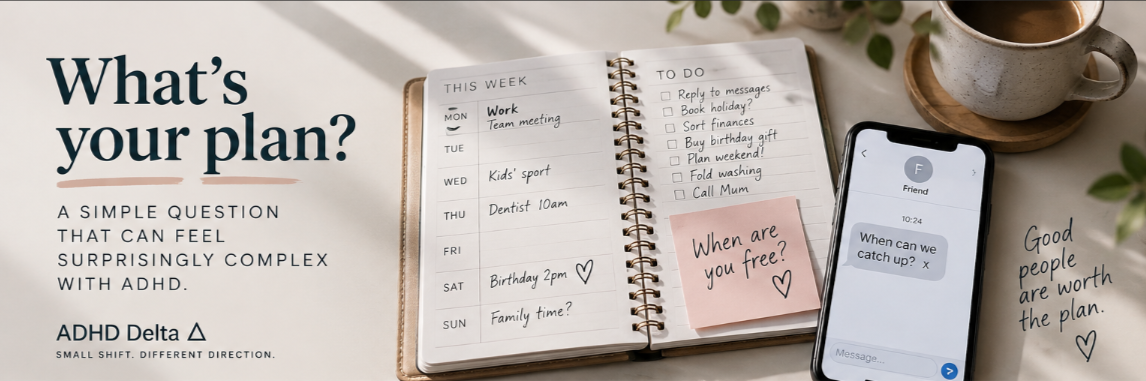 What's
your plan?
A SIMPLE QUESTION
THAT CAN FEEL
SURPRISINGLY COMPLEX
WITH ADHD.
ADHD Delta △
SMALL SHIFT. DIFFERENT DIRECTION.
THIS WEEK
MON Work
Team meeting
TUE
WED Kids' sport
THU Dentist 10am
FRI
SAT Birthday 2pm ♡
SUN Family time?
TO DO
Reply to messages
Book holiday?
Sort finances
Buy birthday gift
Plan weekend!
Fold washing
Call Mum
When are
you free?
♡
F
Friend
10:24
When can we
catch up? x
Message...
Good
people
are worth
the plan.
♡